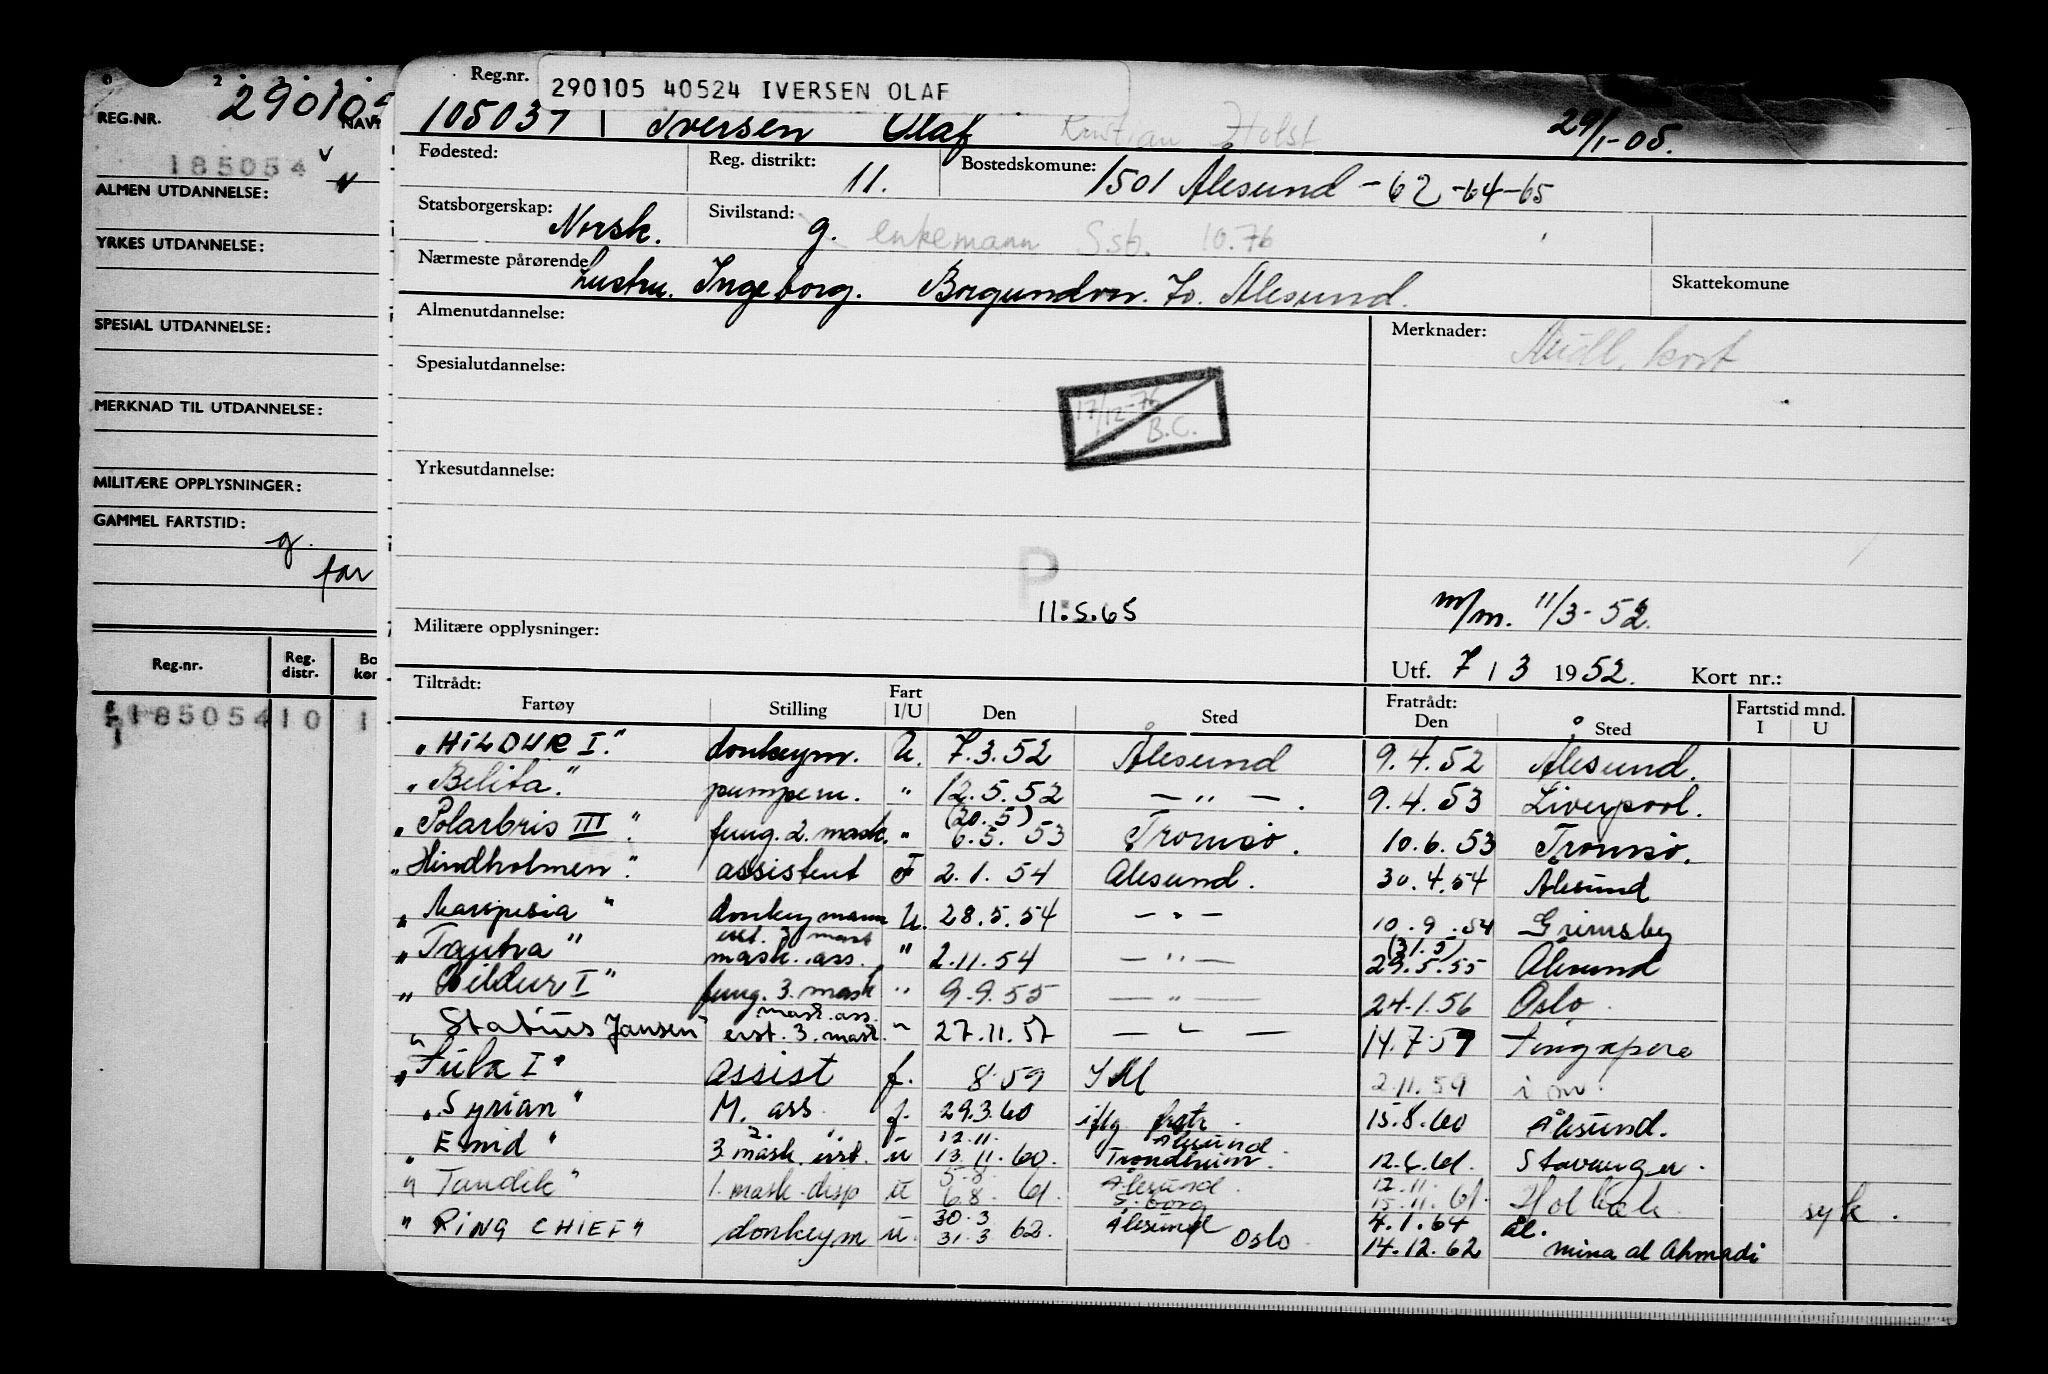 REG.NR.
29010
NAVN
185054 v
ALMEN UTDANNELSE:
YRKES UTDANNELSE:
SPESIAL UTDANNELSE:
MERKNAD TIL UTDANNELSE:
MILITÆRE OPPLYSNINGER:
GAMMEL FARTSTID:
g.
far
Reg.nr. Reg. distr. Bo kon
185054 10 1
Reg.nr.
290105 40524 IVERSEN OLAF
105037 Iversen Olaf Kristian Holst 29/1-05.
Fødested: Reg. distrikt: 11. Bostedskomune: 1501 Ålesund -62-64-65
Statsborgerskap: Norsk. Sivilstand: g. enkemann Ssb. 10.76
Nærmeste pårørende Hustru. Ingeborg. Borgundvn. 70. Ålesund. Skattekomune
Almenutdannelse: Merknader:
kort
Spesialutdannelse:
17/12-76
B.C.
Yrkesutdannelse:
P.
11.5.65
m/m. 11/3-52.
Militære opplysninger:
Utf. 7 / 3 1952. Kort nr.:
Tiltrådt: Fratrådt: Fartstid mnd.
Fartøy Stilling Fart I/U Den Sted Den Sted I U
"HILDUR I." donkeym. U. 7.3.52 Ålesund 9.4.52 Ålesund.
"Belita." pumpem. " 12.5.52 — " —. 9.4.53 Liverpool.
"Polarbris III". fung. 2. mask. " (20.5) 6.5.53 Tromsø. 10.6.53 Tromsø.
"Hindholmen". assistent F 2.1.54 Ålesund. 30.4.54 Ålesund
"Marpesia" donkeymann U. 28.5.54 — " — 10.9.54 Grimsby
"Tautra" erst. 3 mask mask. ass. " 2.11.54 — " — (31.5) 29.5.55 Ålesund
"Hildur I" fung. 3. mask " 9.9.55 — " — 24.1.56 Oslo.
"Statius Jansen" mask. ass. erst. 3. mask. " 27.11.57 — " — 14.7.59 Singapore
"Sula I" assist f. 8.59 IM 2.11.59 i m.
"Syrian" M. ass. f. 29.3.60 iflg 15.8.60 Ålesund.
"Emid" 2. 3 mask. erst. u 12.11. 13.11.60. Ålesund Trondheim. 12.6.61. Stavanger.
"Tandik" 1. mask. disp u 5.8. 6.8.61 Ålesund. S.borg 12.11. 15.11.61. Holbæk. syk.
"RING CHIEF" donkeym u. 30.3 31.3 62. Ålesund Oslo. 4.1.64 Ål.
14.12.62 mina al Ahmadi